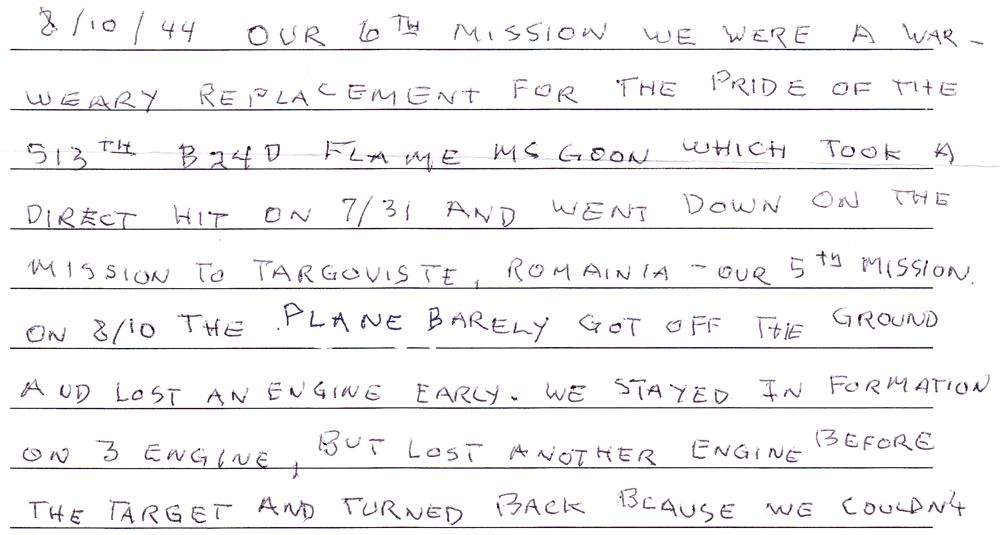 8/10/44 OUR 6TH MISSION WE WERE A WAR-
WEARY REPLACEMENT FOR THE PRIDE OF THE
513TH B24D FLAME MS GOON WHICH TOOK A
DIRECT HIT ON 7/31 AND WENT DOWN ON THE
MISSION TO TARGOVISTE, ROMAINIA - OUR 5TH MISSION.
ON 8/10 THE PLANE BARELY GOT OFF THE GROUND
AND LOST AN ENGINE EARLY. WE STAYED IN FORMATION
ON 3 ENGINE, BUT LOST ANOTHER ENGINE BEFORE
THE TARGET AND TURNED BACK BCAUSE WE COULDN'T